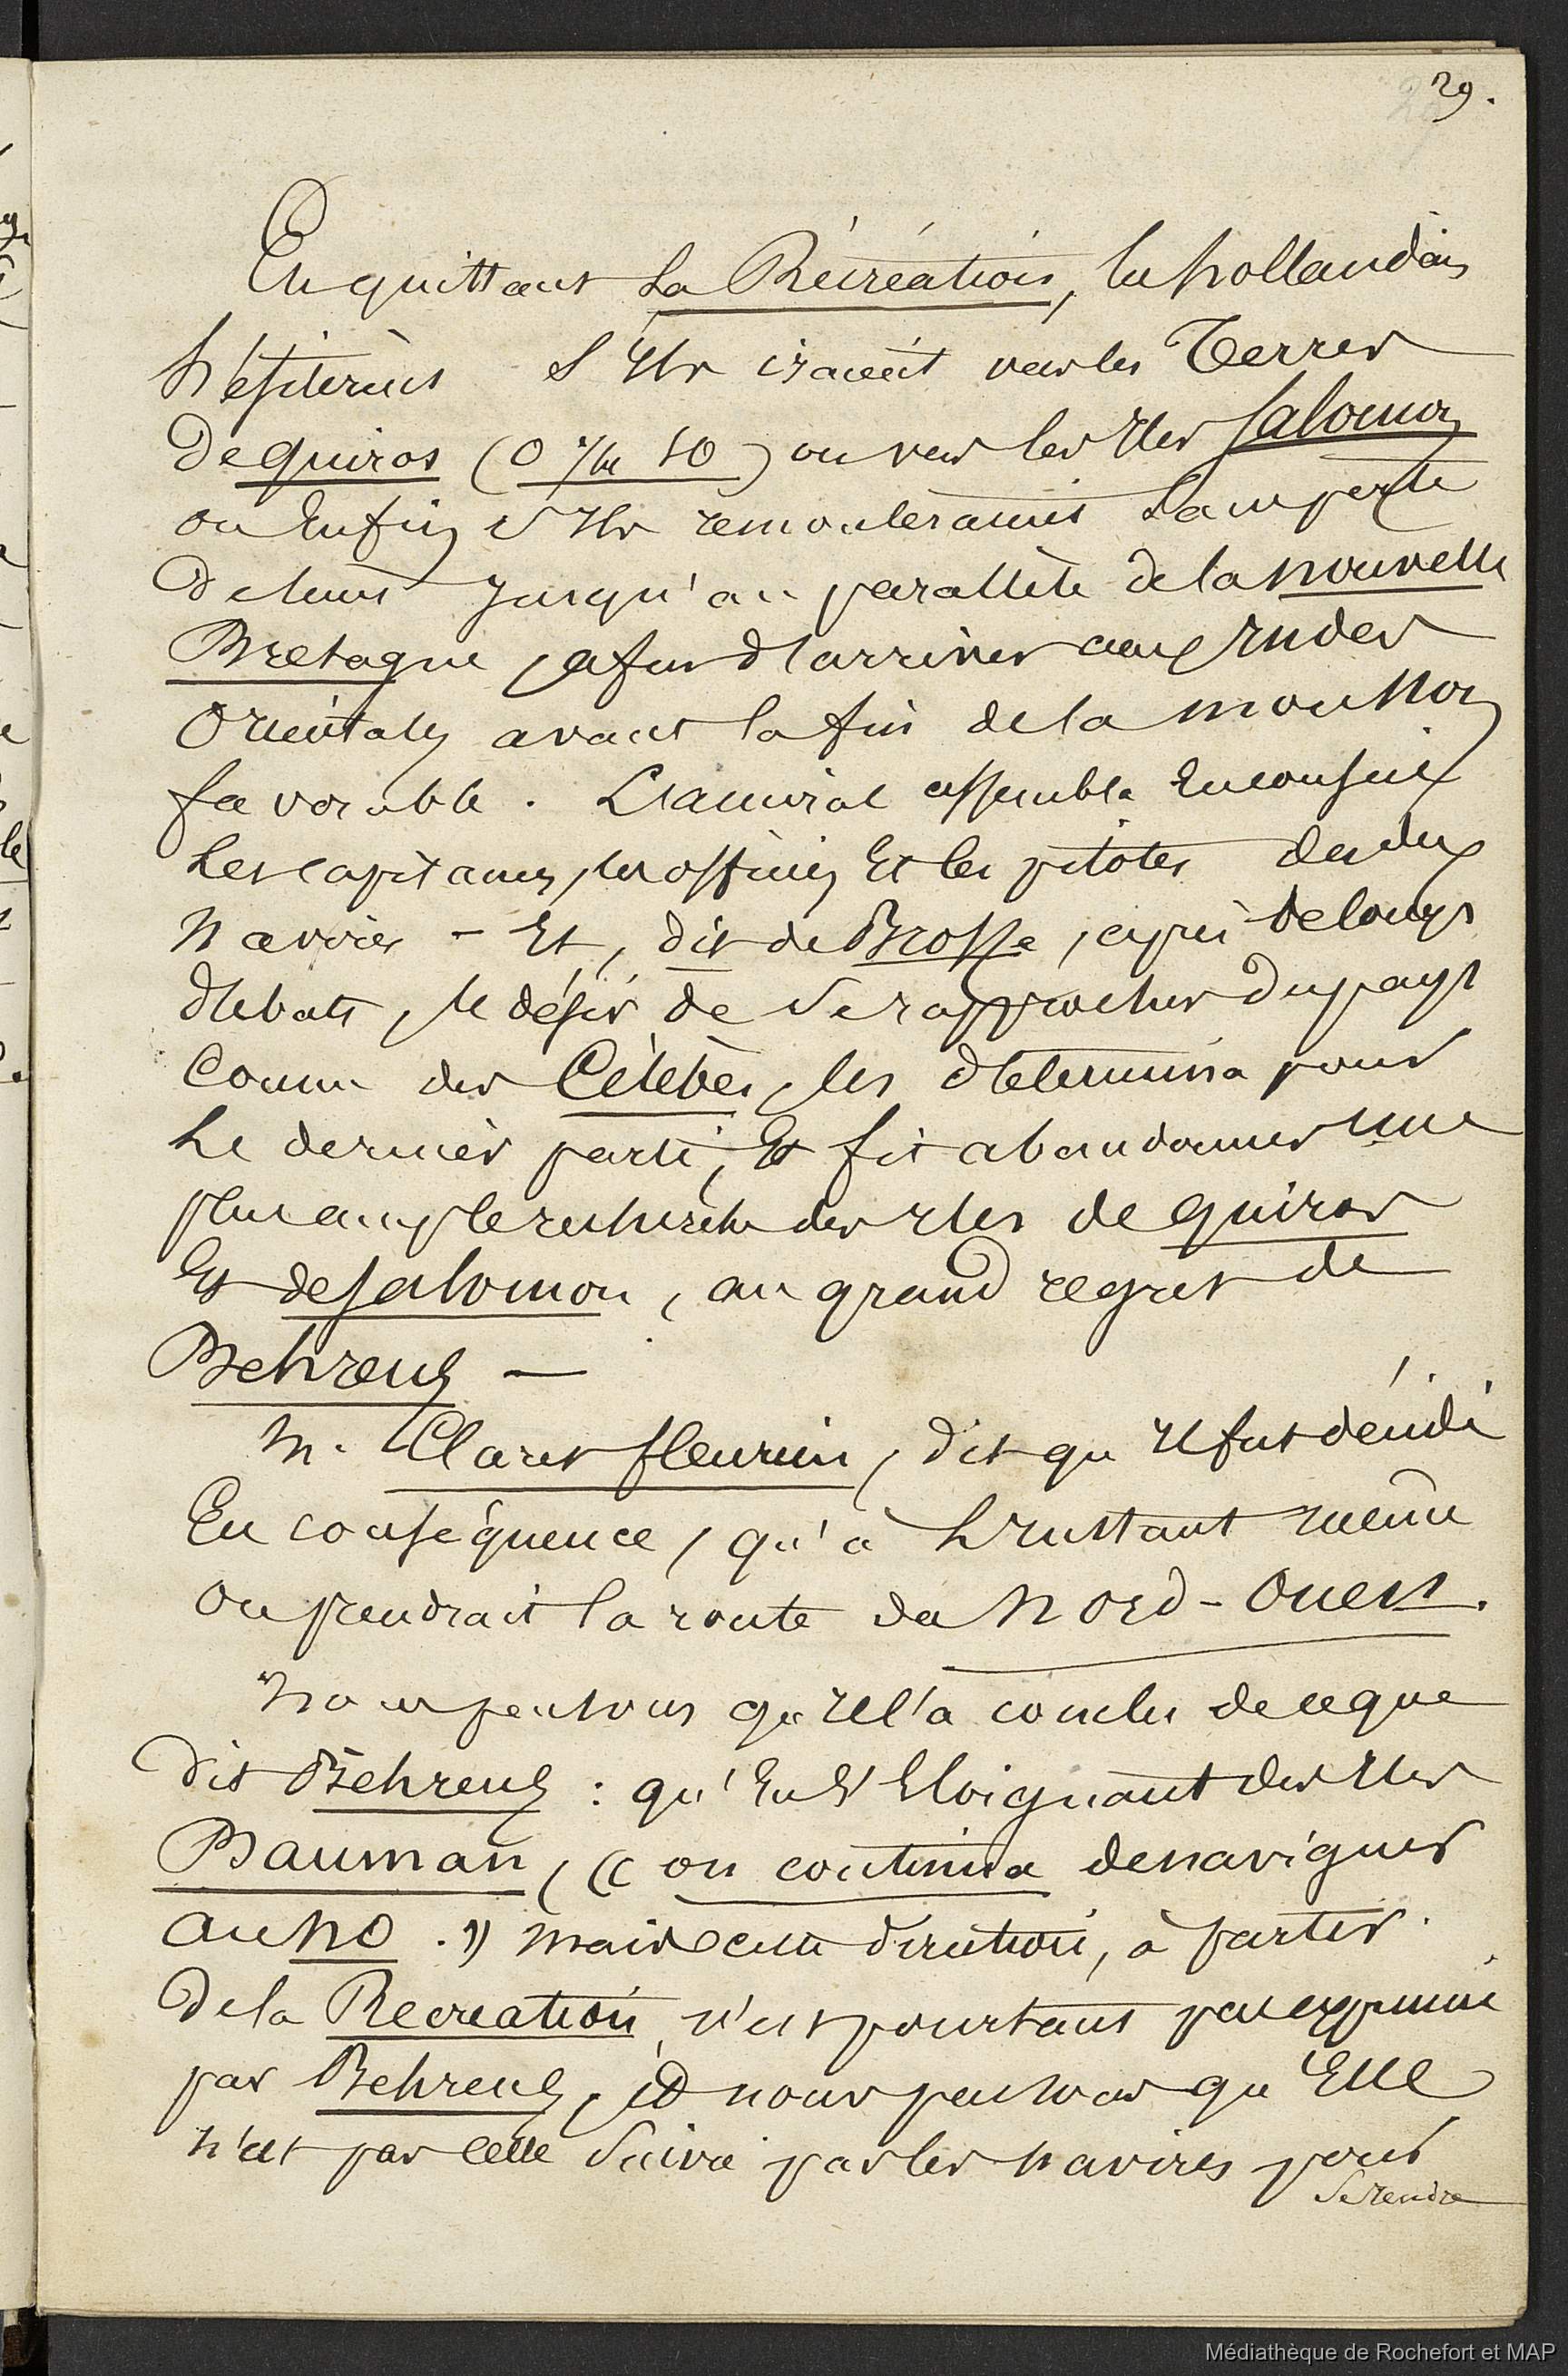 29.
En quittant La Récréation, les hollandais
hésitèrent s'Ils iraient vers les Terres
de quiros (O 1/4 SO) ou vers les Iles Salomon
ou Enfin s'Ils remonteraient sans perte
de tems jusqu'au parallèle de la nouvelle
Bretagne, afin d'arriver aux Indes
Orientales avant la fin de la mousson
favorable. L'amiral assembla En conseil
Les capitaines, les officiers Et les pilotes des deux
navires - Et, dit de Brosse, après de longs
débats, le désir de se rapprocher du pays
connu des Célèbes, les détermina pour
Le dernier parti, Et fit abandonner une
plus ample recherche des Iles de quiros
Et de Salomon, au grand regret de
Behrens —
M. Claret fleurieu, dit qu'Il fut décidé
En conséquence, qu'à L'Instant même
on prendrait la route du Nord-Ouest.
Nous pensons qu'Il l'a conclu de ce que
dit Behrens : qu'En s'Eloignant des Iles
Bauman, « on continua de naviguer
au NO. » mais cette direction, à partir
de la Recreation n'est pourtant pas exprimée
par Behrens, Et nous pensons qu'Elle
n'est pas celle suivie par les navires pour
Se rendre
Médiathèque de Rochefort et MAP